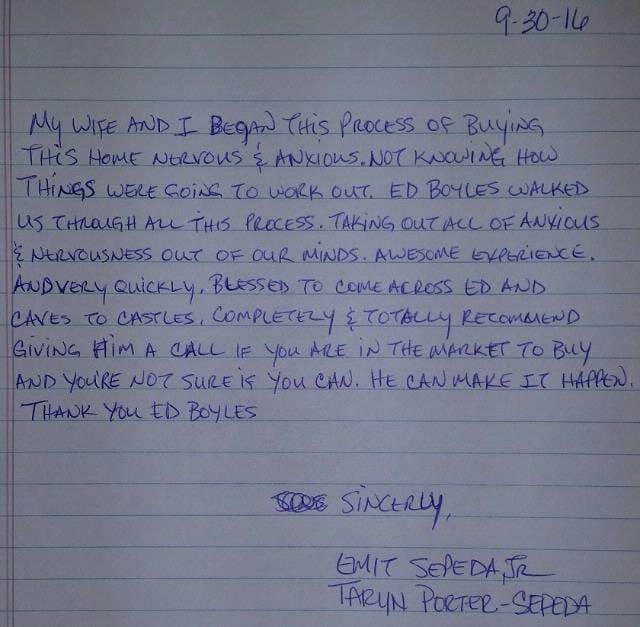 9-30-16
My WIFE AND I BEGAN THIS PROCESS OF BUYING
THIS HOME NERVOUS & ANXIOUS. NOT KNOWING HOW
THINGS WERE GOING TO WORK OUT. ED BOYLES WALKED
US THROUGH ALL THIS PROCESS. TAKING OUT ALL OF ANXIOUS
& NERVOUSNESS OUT OF OUR MINDS. AWESOME EXPERIENCE.
AND VERY QUICKLY. BLESSED TO COME ACROSS ED AND
CAVES TO CASTLES. COMPLETELY & TOTALLY RECOMMEND
GIVING HIM A CALL IF YOU ARE IN THE MARKET TO BUY
AND YOU'RE NOT SURE IF YOU CAN. HE CAN MAKE IT HAPPEN.
THANK YOU ED BOYLES
SINCERLY,
EMIT SEPEDA, JR
TARYN PORTER-SEPEDA